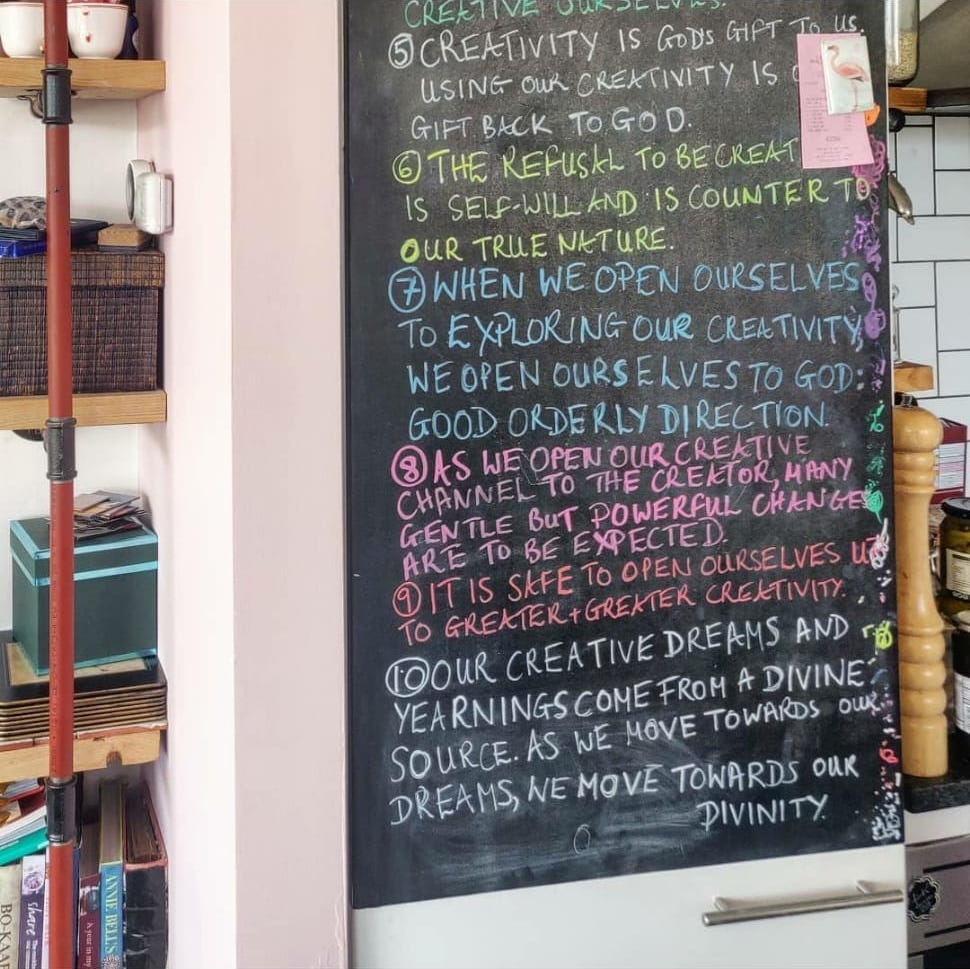 CREATIVE OURSELVES.
⑤ CREATIVITY IS GOD'S GIFT TO US.
USING OUR CREATIVITY IS
GIFT BACK TO GOD.
⑥ THE REFUSAL TO BE CREAT
IS SELF-WILL AND IS COUNTER TO
OUR TRUE NATURE.
⑦ WHEN WE OPEN OURSELVES
TO EXPLORING OUR CREATIVITY,
WE OPEN OURSELVES TO GOD:
GOOD ORDERLY DIRECTION.
⑧ AS WE OPEN OUR CREATIVE
CHANNEL TO THE CREATOR, MANY
GENTLE BUT POWERFUL CHANGES
ARE TO BE EXPECTED.
⑨ IT IS SAFE TO OPEN OURSELVES UP
TO GREATER + GREATER CREATIVITY.
⑩ OUR CREATIVE DREAMS AND
YEARNINGS COME FROM A DIVINE
SOURCE. AS WE MOVE TOWARDS OUR
DREAMS, WE MOVE TOWARDS OUR
DIVINITY.
BO-KAAP
share
A year in my
ANNIE BELL'S